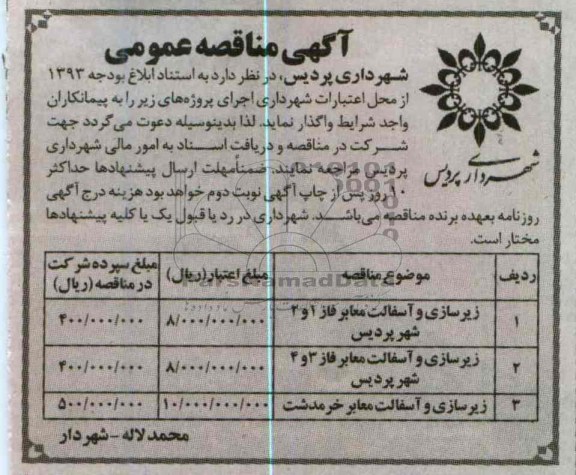 آگهی مناقصه عمومی
شهرداری پردیس
شهرداری پردیس، در نظر دارد به استناد ابلاغ بودجه ۱۳۹۳
از محل اعتبارات شهرداری اجرای پروژه‌های زیر را به پیمانکاران
واجد شرایط واگذار نماید. لذا بدینوسیله دعوت می‌گردد جهت
شرکت در مناقصه و دریافت اسناد به امور مالی شهرداری
پردیس مراجعه نمایند. ضمناً مهلت ارسال پیشنهادها حداکثر
۱۰ روز پس از چاپ آگهی نوبت دوم خواهد بود هزینه درج آگهی
روزنامه بعهده برنده مناقصه می‌باشد. شهرداری در رد یا قبول یک یا کلیه پیشنهادها
مختار است.
ردیف موضوع مناقصه مبلغ اعتبار (ریال) مبلغ سپرده شرکت در مناقصه (ریال)
۱ زیرسازی و آسفالت معابر فاز ۱ و ۲ شهر پردیس ۸/۰۰۰/۰۰۰/۰۰۰ ۴۰۰/۰۰۰/۰۰۰
۲ زیرسازی و آسفالت معابر فاز ۳ و ۴ شهر پردیس ۸/۰۰۰/۰۰۰/۰۰۰ ۴۰۰/۰۰۰/۰۰۰
۳ زیرسازی و آسفالت معابر خرمدشت ۱۰/۰۰۰/۰۰۰/۰۰۰ ۵۰۰/۰۰۰/۰۰۰
محمد لاله - شهردار
ParsNamadData